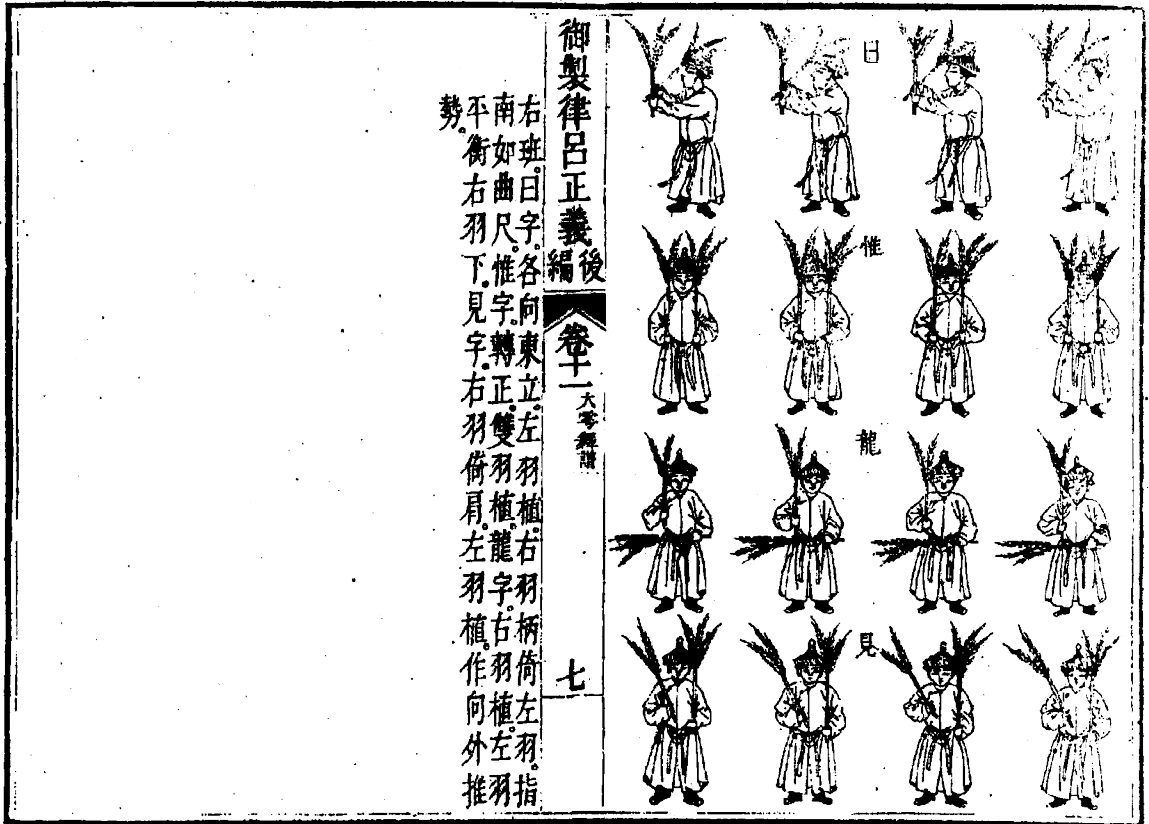 日
惟
龍
見
御製律呂正義後編
卷十一
大雩舞譜
七
右班日字各向東立左羽植右羽柄倚左羽指
南如曲尺惟字轉正雙羽植龍字右羽植左羽
平衡右羽下見字右羽倚肩左羽植作向外推
勢